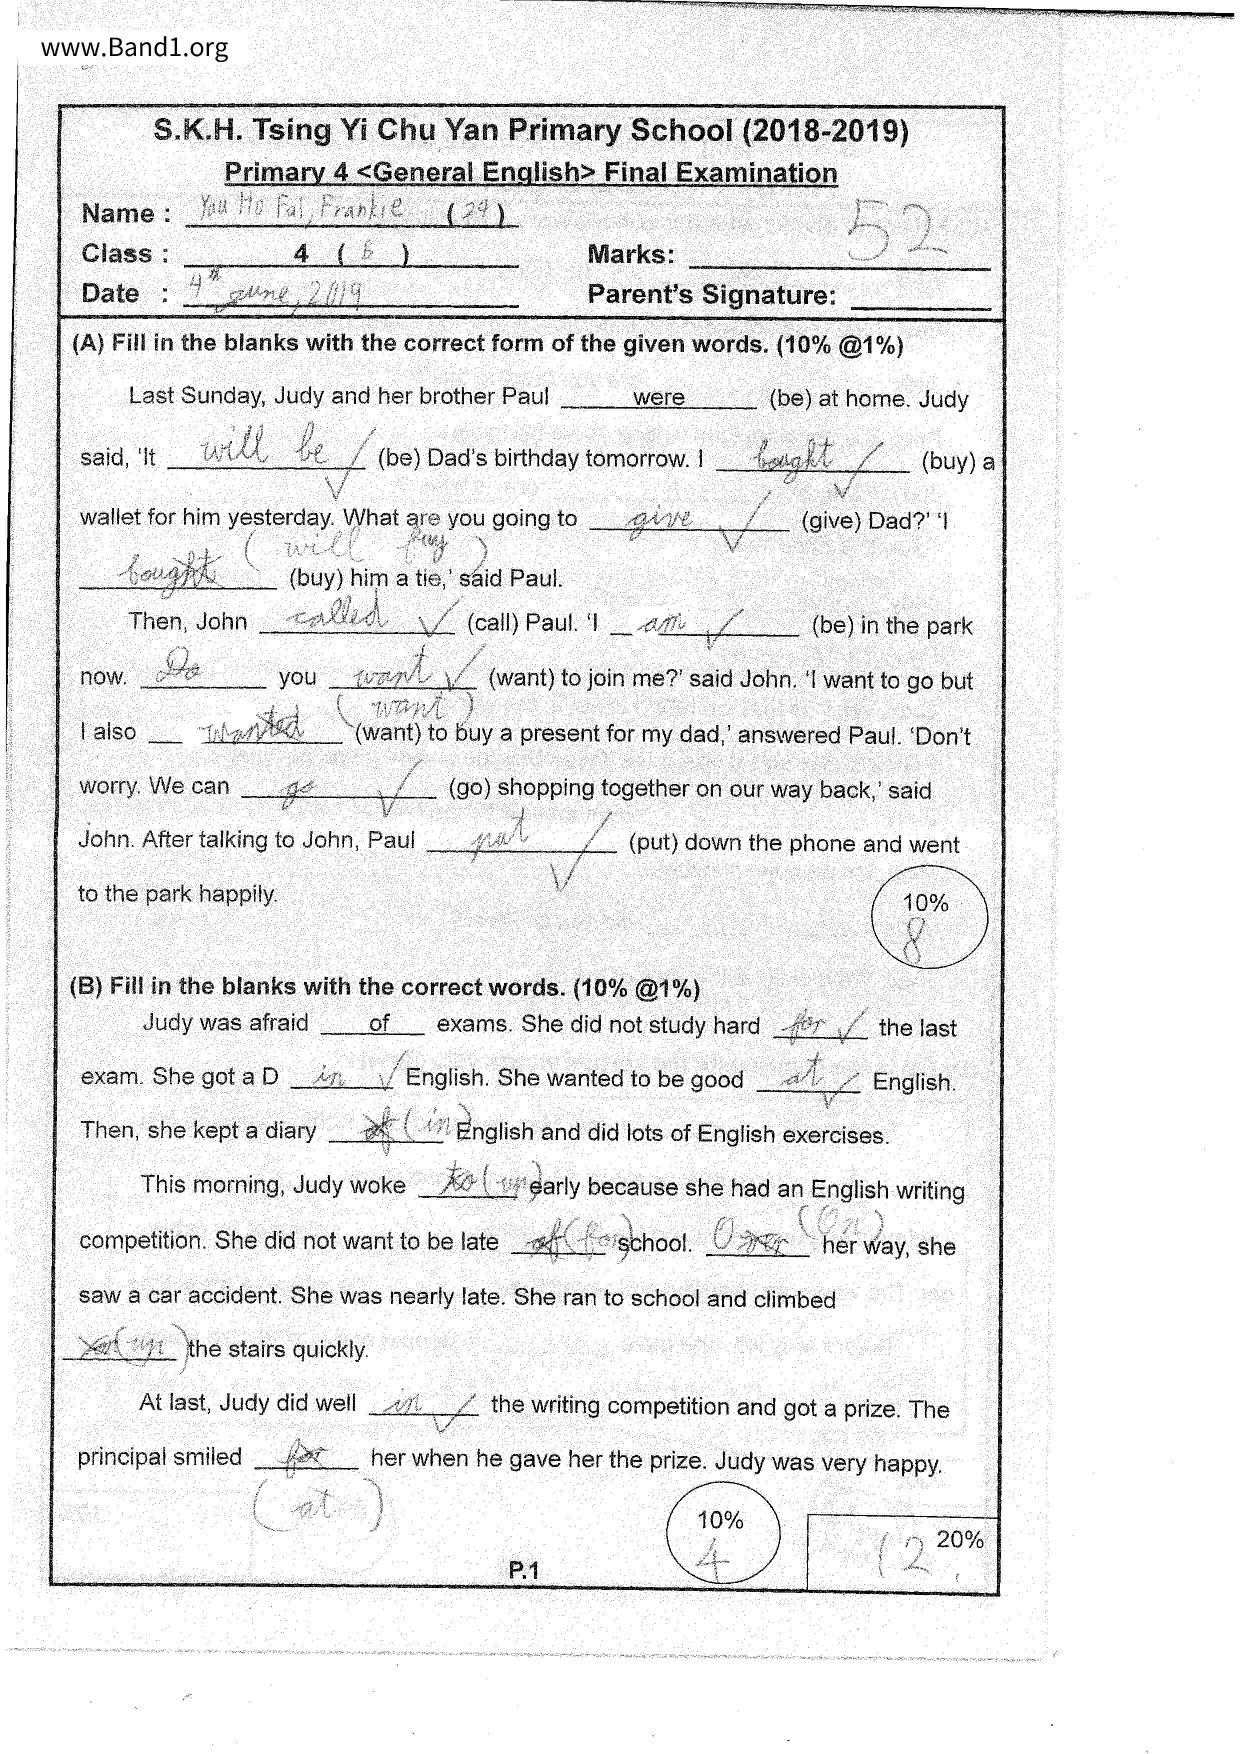 www.Band1.org
S.K.H. Tsing Yi Chu Yan Primary School (2018-2019)
Primary 4 <General English> Final Examination
Name : Yau Ho Fai, Frankie (24)
52
Class : 4 ( ) Marks:
Date : 4th June, 2019 Parent's Signature:
(A) Fill in the blanks with the correct form of the given words. (10% @1%)
Last Sunday, Judy and her brother Paul were (be) at home. Judy
said, 'It will be (be) Dad's birthday tomorrow. I bought (buy) a
wallet for him yesterday. What are you going to give (give) Dad?' 'I
(will buy)
bought (buy) him a tie,' said Paul.
Then, John called (call) Paul. 'I am (be) in the park
now. Do you want (want) to join me?' said John. 'I want to go but
(want)
I also wanted (want) to buy a present for my dad,' answered Paul. 'Don't
worry. We can go (go) shopping together on our way back,' said
John. After talking to John, Paul put (put) down the phone and went
to the park happily.
10%
8
(B) Fill in the blanks with the correct words. (10% @1%)
Judy was afraid of exams. She did not study hard for the last
exam. She got a D in English. She wanted to be good at English.
Then, she kept a diary of (in) English and did lots of English exercises.
This morning, Judy woke to (up) early because she had an English writing
(On)
competition. She did not want to be late of (for) school. Over her way, she
saw a car accident. She was nearly late. She ran to school and climbed
(up) the stairs quickly.
At last, Judy did well in the writing competition and got a prize. The
principal smiled for her when he gave her the prize. Judy was very happy.
(at)
10%
4
20%
12
P.1